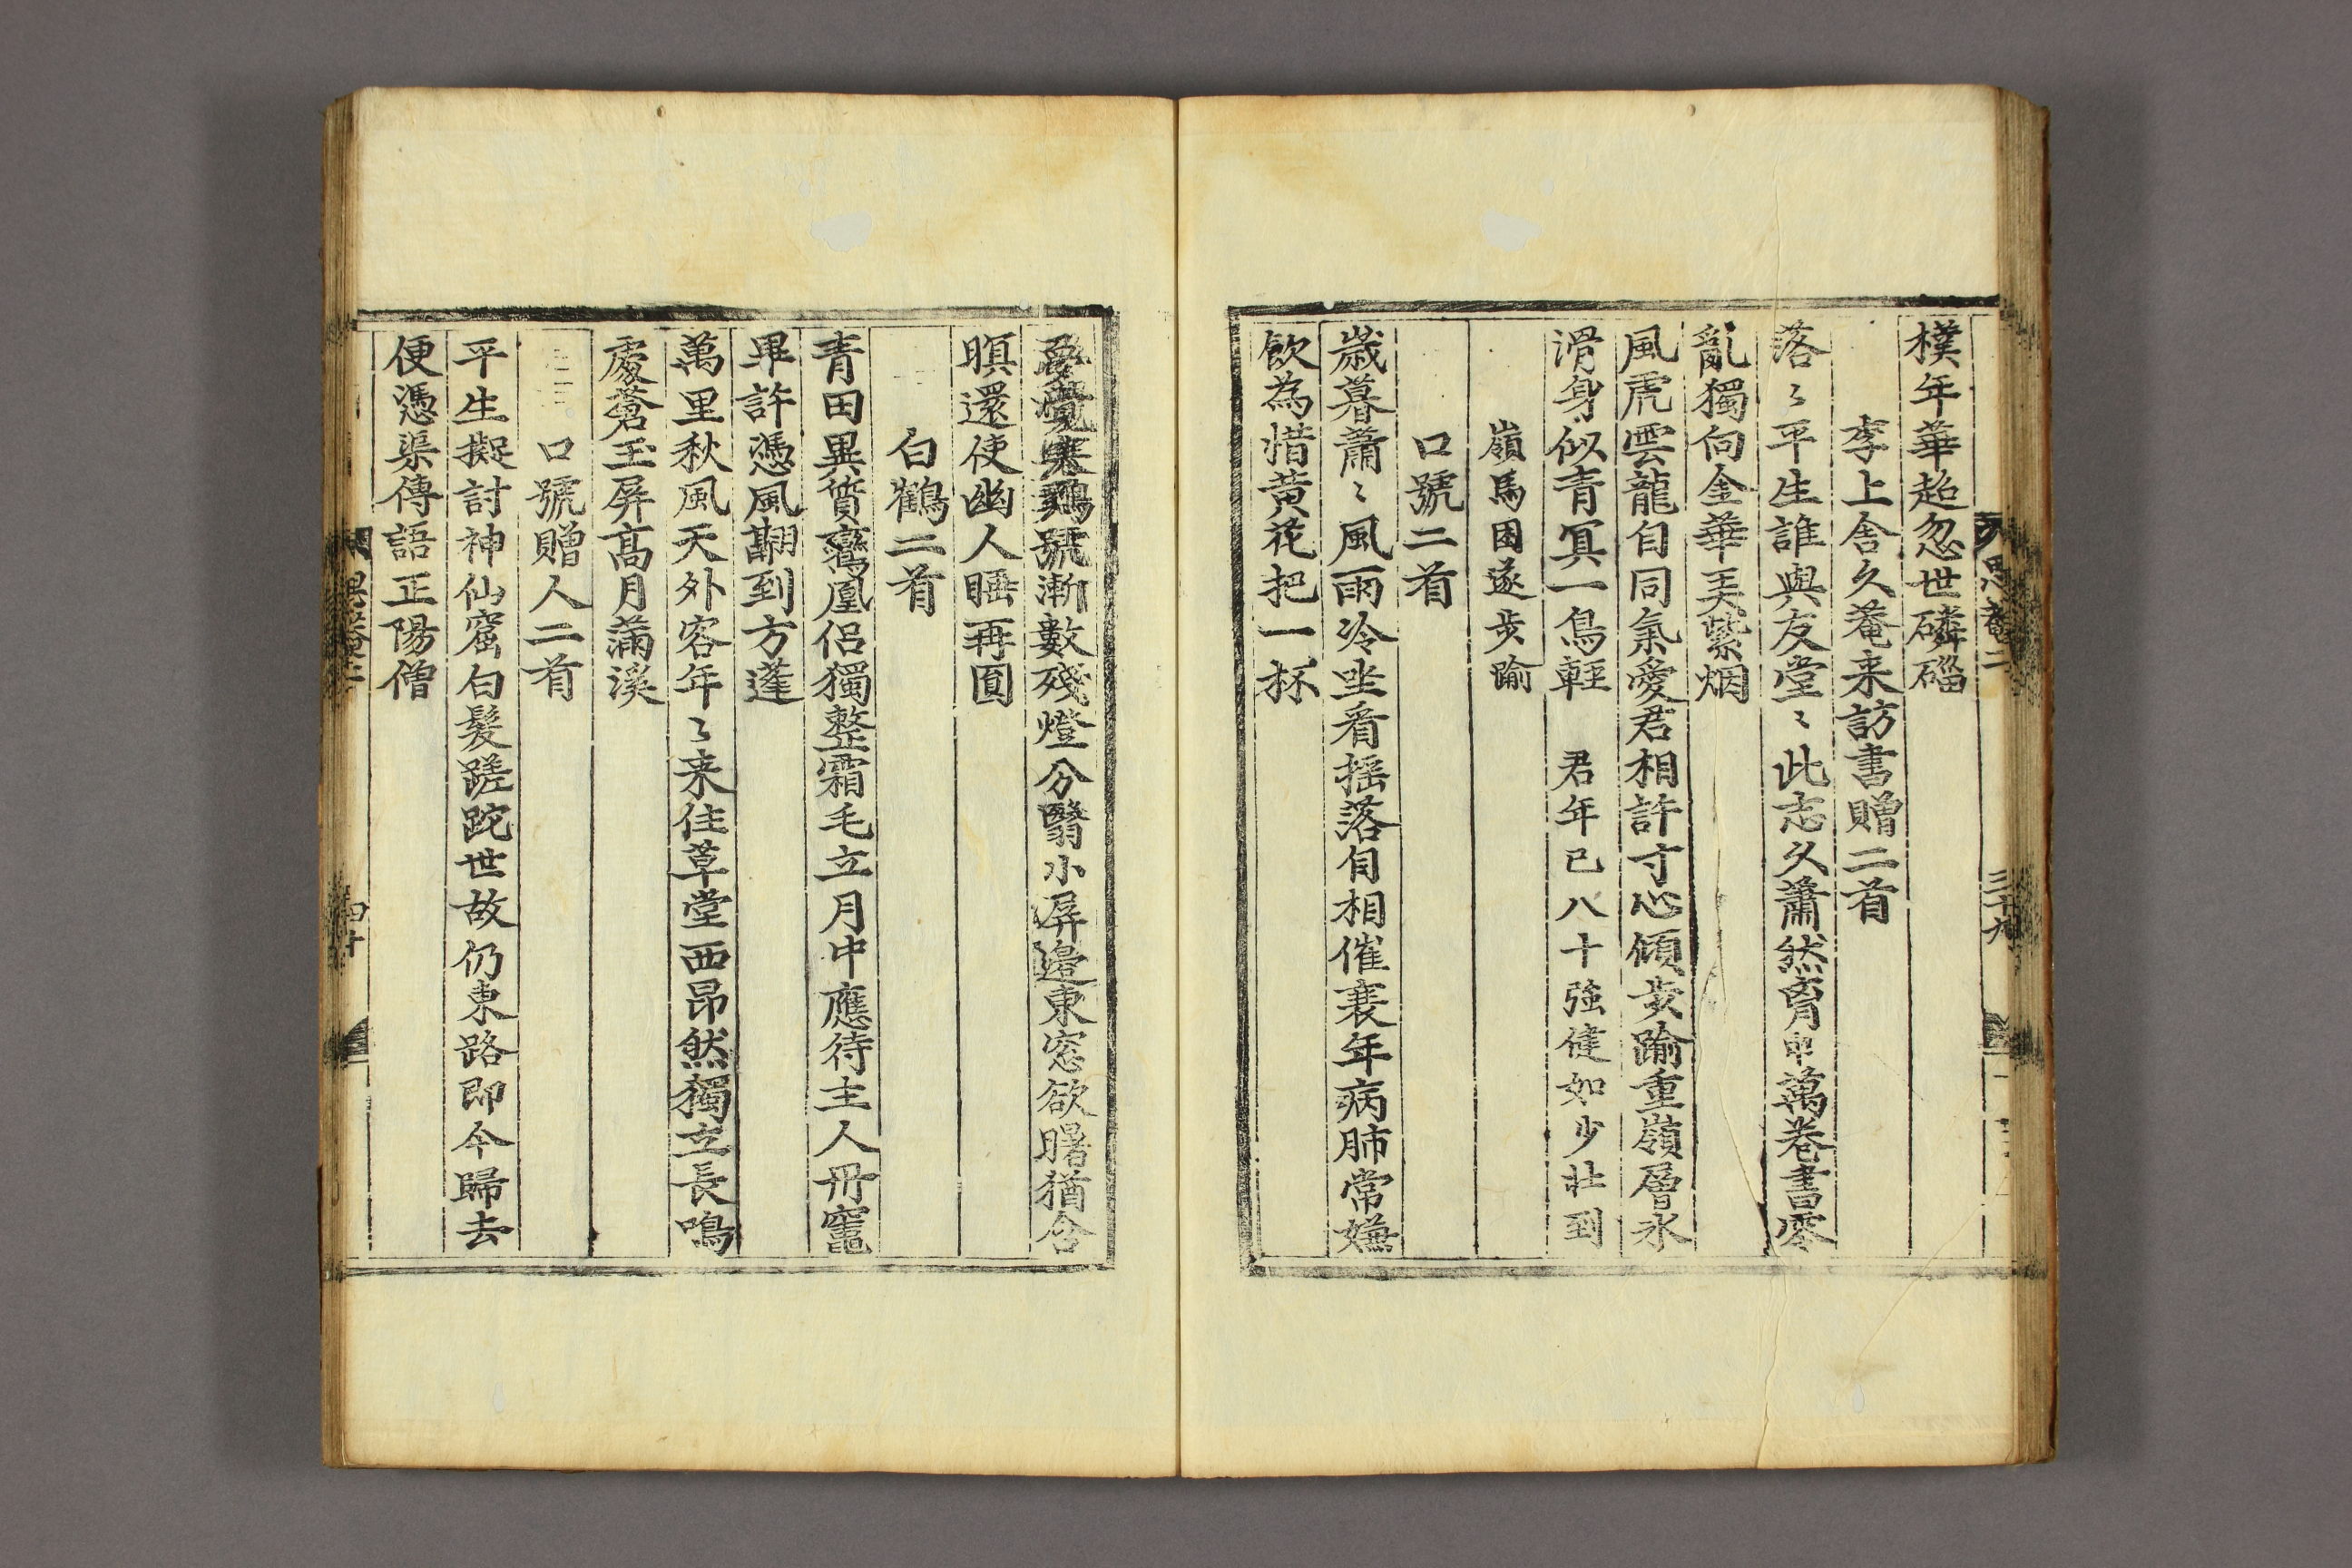 思菴二
三十九
樸年華超忽世磷磂
李上舍久菴来訪書贈二首
落〻平生誰與友堂〻此志久蕭然胷中萬卷書零
亂獨向金華美紫烟
風虎雲龍自同氣愛君相許寸心傾步踰重嶺層氷
滑身似青冥一鳥輊 君年已八十強健如少壯到
嶺馬困遂步踰
口號二首
歳暮蕭〻風雨冷坐看揺落自相催衰年病肺常嫌
飲為惜黄花把一杯
夢覺寒鷄號漸數殘燈分翳小屏邉東窓欲曙猶含
瞑還使幽人睡再圓
白鶴二首
青田異質鸞凰侣獨整霜毛立月中應待主人丹竈
畢許憑風翮到方蓬
萬里秋風天外客年〻来住草堂西昂然獨立長鳴
處蒼玉屏髙月滿溪
口號贈人二首
平生擬討神仙窟白髮蹉跎世故仍東路即今歸去
便憑渠傳語正陽僧
四十